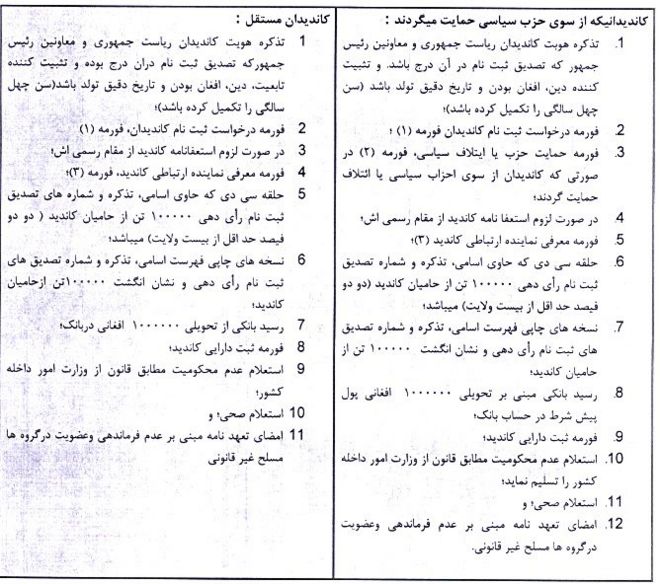 کاندیدانیکه از سوی حزب سیاسی حمایت میگردند :
1. تذکره هویت کاندیدان ریاست جمهوری و معاونین رئیس
جمهور که تصدیق ثبت نام در آن درج باشد. و تثبیت
کننده دین، افغان بودن و تاریخ دقیق تولد باشد (سن
چهل سالگی را تکمیل کرده باشد)؛
2. فورمه درخواست ثبت نام کاندیدان فورمه (۱) ؛
3. فورمه حمایت حزب یا ایتلاف سیاسی، فورمه (۲) در
صورتی که کاندیدان از سوی احزاب سیاسی یا ائتلاف
حمایت گردند؛
4. در صورت لزوم استعفا نامه کاندید از مقام رسمی اش؛
5. فورمه معرفی نماینده ارتباطی کاندید (۳)؛
6. حلقه سی دی که حاوی اسامی، تذکره و شماره تصدیق
ثبت نام رأی دهی ۱۰۰۰۰۰ تن از حامیان کاندید (دو دو
فیصد حد اقل از بیست ولایت) میباشد؛
7. نسخه های چاپی فهرست اسامی، تذکره و شماره تصدیق
های ثبت نام رأی دهی و نشان انگشت ۱۰۰۰۰۰ تن از
حامیان کاندید؛
8. رسید بانکی مبنی بر تحویلی ۱۰۰۰۰۰۰ افغانی پول
پیش شرط در حساب بانک؛
9. فورمه ثبت دارایی کاندید؛
10. استعلام عدم محکومیت مطابق قانون از وزارت امور داخله
کشور را تسلیم نماید؛
11. استعلام صحی؛ و
12. امضای تعهد نامه مبنی بر عدم فرماندهی وعضویت
درگروه ها مسلح غیر قانونی.
کاندیدان مستقل :
1 تذکره هویت کاندیدان ریاست جمهوری و معاونین رئیس
جمهورکه تصدیق ثبت نام دران درج بوده و تثبیت کننده
تابعیت، دین، افغان بودن و تاریخ دقیق تولد باشد(سن چهل
سالگی را تکمیل کرده باشد)؛
2 فورمه درخواست ثبت نام کاندیدان، فورمه (۱)
3 در صورت لزوم استعفانامه کاندید از مقام رسمی اش؛
4 فورمه معرفی نماینده ارتباطی کاندید، فورمه (۳)؛
5 حلقه سی دی که حاوی اسامی، تذکره و شماره های تصدیق
ثبت نام رأی دهی ۱۰۰۰۰۰ تن از حامیان کاندید ( دو دو
فیصد حد اقل از بیست ولایت) میباشد؛
6 نسخه های چاپی فهرست اسامی، تذکره و شماره تصدیق های
ثبت نام رأی دهی و نشان انگشت ۱۰۰۰۰۰تن ازحامیان
کاندید؛
7 رسید بانکی از تحویلی ۱۰۰۰۰۰۰ افغانی دربانک؛
8 فورمه ثبت دارایی کاندید؛
9 استعلام عدم محکومیت مطابق قانون از وزارت امور داخله
کشور؛
10 استعلام صحی؛ و
11 امضای تعهد نامه مبنی بر عدم فرماندهی وعضویت درگروه ها
مسلح غیر قانونی